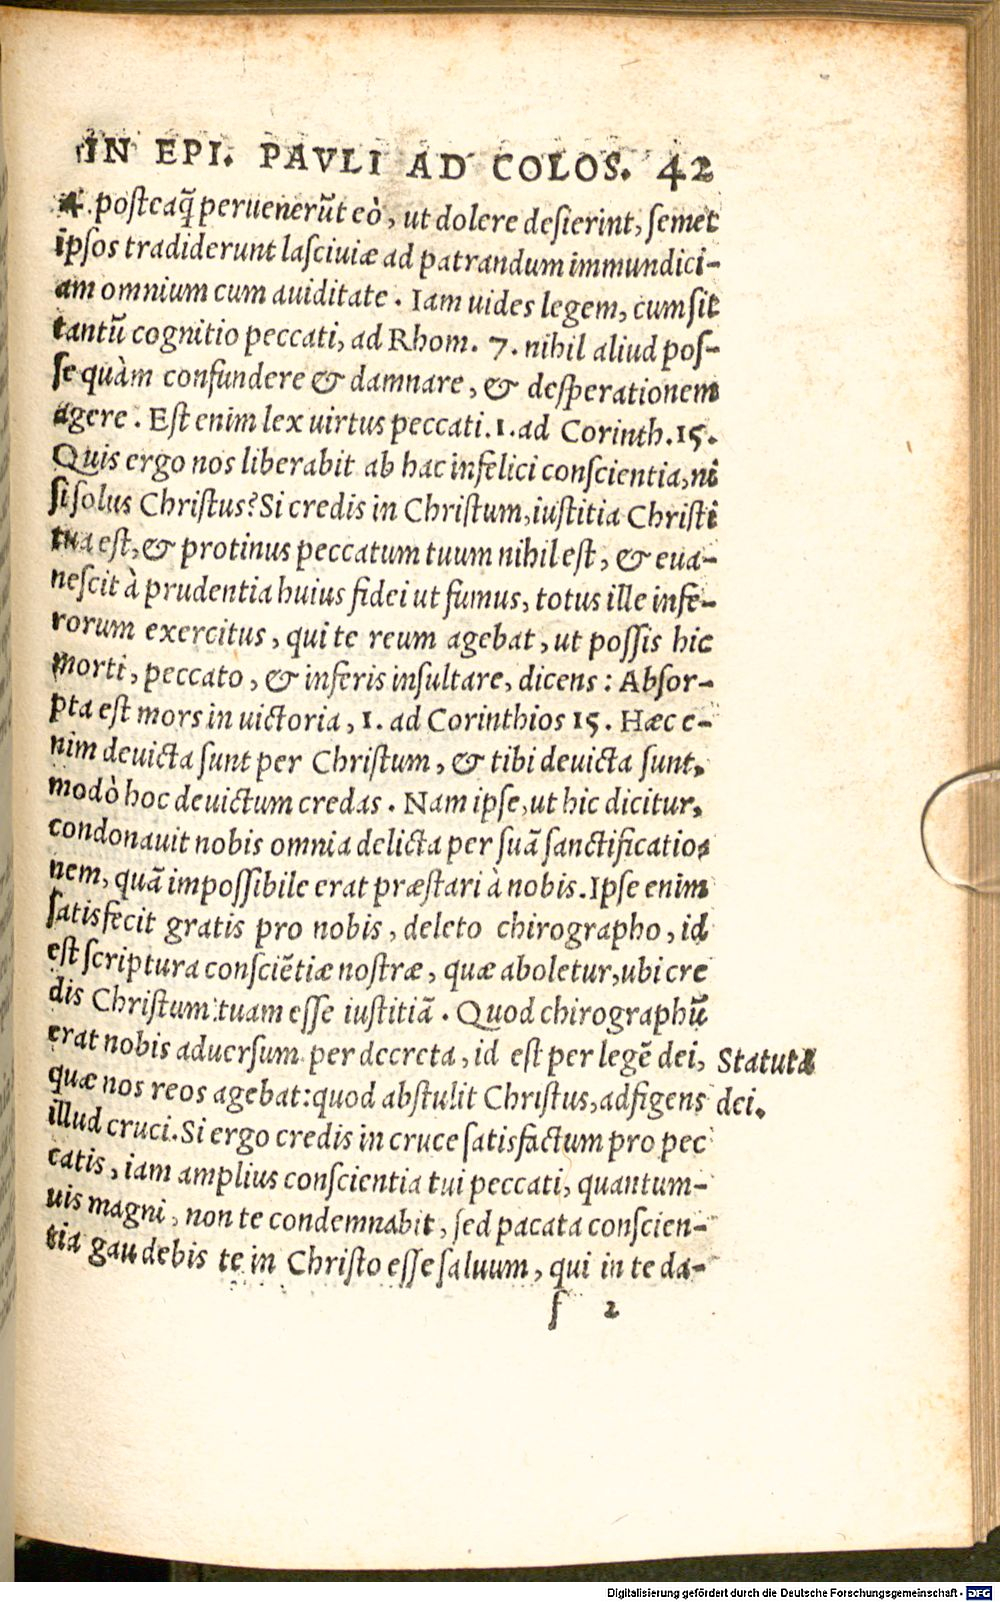 IN EPI. PAVLI AD COLOS. 42
4. posteaq̃ peruenerūt eò, ut dolere desierint, semet
ipsos tradiderunt lasciuiæ ad patrandum immundici-
am omnium cum auiditate. Iam uides legem, cum sit
tantū cognitio peccati, ad Rhom. 7. nihil aliud pos-
se quàm confundere & damnare, & desperationem
agere. Est enim lex uirtus peccati. 1. ad Corinth. 15.
Quis ergo nos liberabit ab hac infelici conscientia, ni
si solus Christus? Si credis in Christum, iustitia Christi
tua est, & protinus peccatum tuum nihil est, & eua-
nescit à prudentia huius fidei ut fumus, totus ille infe-
rorum exercitus, qui te reum agebat, ut possis hic
morti, peccato, & inferis insultare, dicens: Absor-
pta est mors in uictoria, 1. ad Corinthios 15. Hæc e-
nim deuicta sunt per Christum, & tibi deuicta sunt,
modò hoc deuictum credas. Nam ipse, ut hic dicitur,
condonauit nobis omnia delicta per suā sanctificatio-
nem, quā impossibile erat præstari à nobis. Ipse enim
satisfecit gratis pro nobis, deleto chirographo, id
est scriptura consciētiæ nostræ, quæ aboletur, ubi cre
dis Christum tuam esse iustitiā. Quod chirographū
erat nobis aduersum per decreta, id est per legē dei, Statuta
quæ nos reos agebat: quod abstulit Christus, adfigens dei.
illud cruci. Si ergo credis in cruce satisfactum pro pec
catis, iam amplius conscientia tui peccati, quantum-
uis magni, non te condemnabit, sed pacata conscien-
tia gaudebis te in Christo esse saluum, qui in te da-
f 2
Digitalisierung gefördert durch die Deutsche Forschungsgemeinschaft - DFG